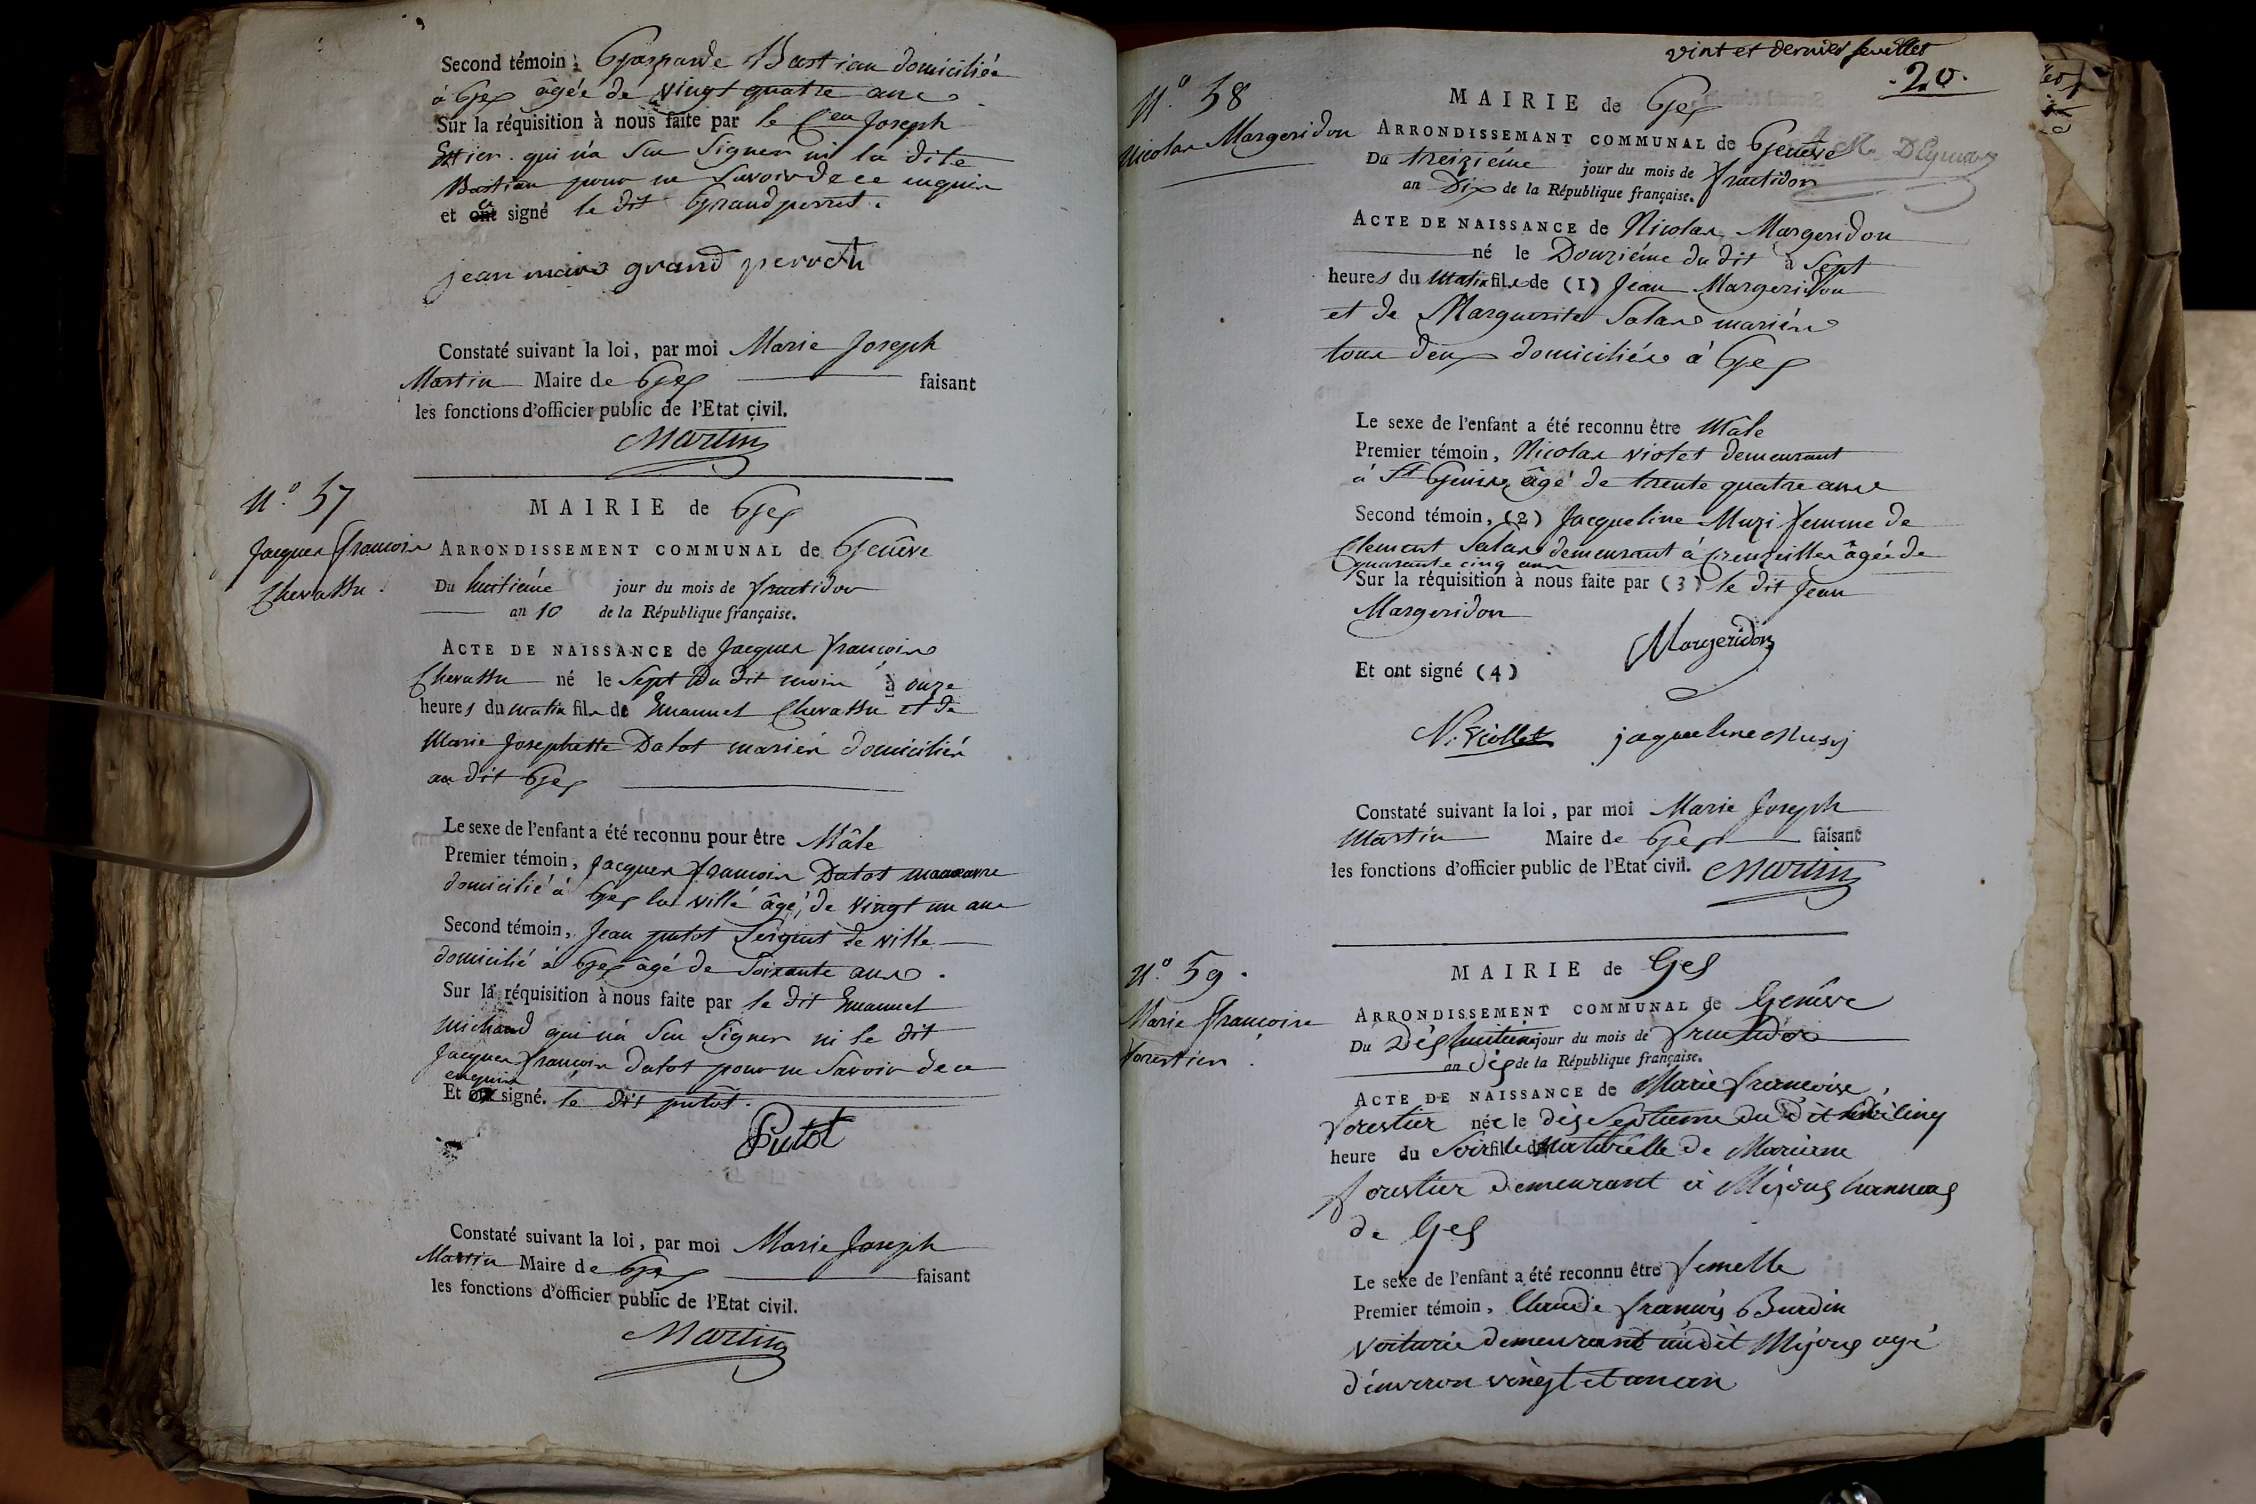 Second témoin; Gasparde Bastian domiciliée
à Gex âgée de vingt quatre ans
Sur la réquisition à nous faite par le Cen Joseph
qui n'a Su Signer ni la dite
Bastian pour ne Savoir de ce enquis
et a signé le dit Grandperret.
jean marc grand perroth
Constaté suivant la loi, par moi Marie Joseph
Martin Maire de Gex faisant
les fonctions d'officier public de l'Etat civil.
Martin
N.o 57
Jacques François
Chevassu.
MAIRIE de Gex
ARRONDISSEMENT COMMUNAL de Genêve
Du huitième jour du mois de fructidor
an 10 de la République française.
ACTE DE NAISSANCE de Jacques François
Chevassu né le Sept du dit mois à onze
heures du matin fils de Emanuel Chevassu et de
Marie Josephatte Datot mariés domiciliés
au dit Gex
Le sexe de l'enfant a été reconnu pour être Mâle
Premier témoin, Jacques François Datot
domicilié à Gex la ville âgé de vingt un ans
Second témoin, Jean putot Sergent de ville
domicilié à Gex âgé de Soixante ans.
Sur la réquisition à nous faite par le dit Emanuel
michaud qui n'a Su Signer ni le dit
Jacques François Datot pour ne Savoir de ce
enquis
Et signé. le dit putot.
Putot
Constaté suivant la loi, par moi Marie Joseph
Martin Maire de Gex faisant
les fonctions d'officier public de l'Etat civil.
Martin
vint et dernier feuillet
.20.
N.o 58
Nicolas Margeridon
MAIRIE de Gex
ARRONDISSEMANT COMMUNAL de Genêve
Du treizième jour du mois de fructidor
an Dix de la République française.
ACTE DE NAISSANCE de Nicolas Margeridon
né le Douzième du dit à Sept
heures du Matin fils de (1) Jean Margeridon
et de Marguerite Salas mariés
tous deux domiciliés à Gex
Le sexe de l'enfant a été reconnu être Mâle
Premier témoin, Nicolas violet demeurant
à St Genis, âgé de trente quatre ans
Second témoin, (2) Jacqueline Muzi femme de
Clement Salas demeurant à âgée de
quarante cinq ans
Sur la réquisition à nous faite par (3) le dit Jean
Margeridon
Margeridon
Et ont signé (4)
N. Viollet jaqueline Musy
Constaté suivant la loi, par moi Marie Joseph
Martin Maire de Gex faisant
les fonctions d'officier public de l'Etat civil. Martin
N.o 59.
Marie Françoise
forestier.
MAIRIE de Gex
ARRONDISSEMENT COMMUNAL de Genêve
Du Dès huitième jour du mois de fructidor
an dès de la République française.
ACTE DE NAISSANCE de Marie françoise
forestier née le dès Septieme du dit cinq
heure du Soir fille naturelle de Mariane
forestier demeurant à Mijoux hameau
de Gex
Le sexe de l'enfant a été reconnu être femelle
Premier témoin, Claude françois Burdin
voiturié demeurant audit Mijoux agé
d'environ vingt et un an